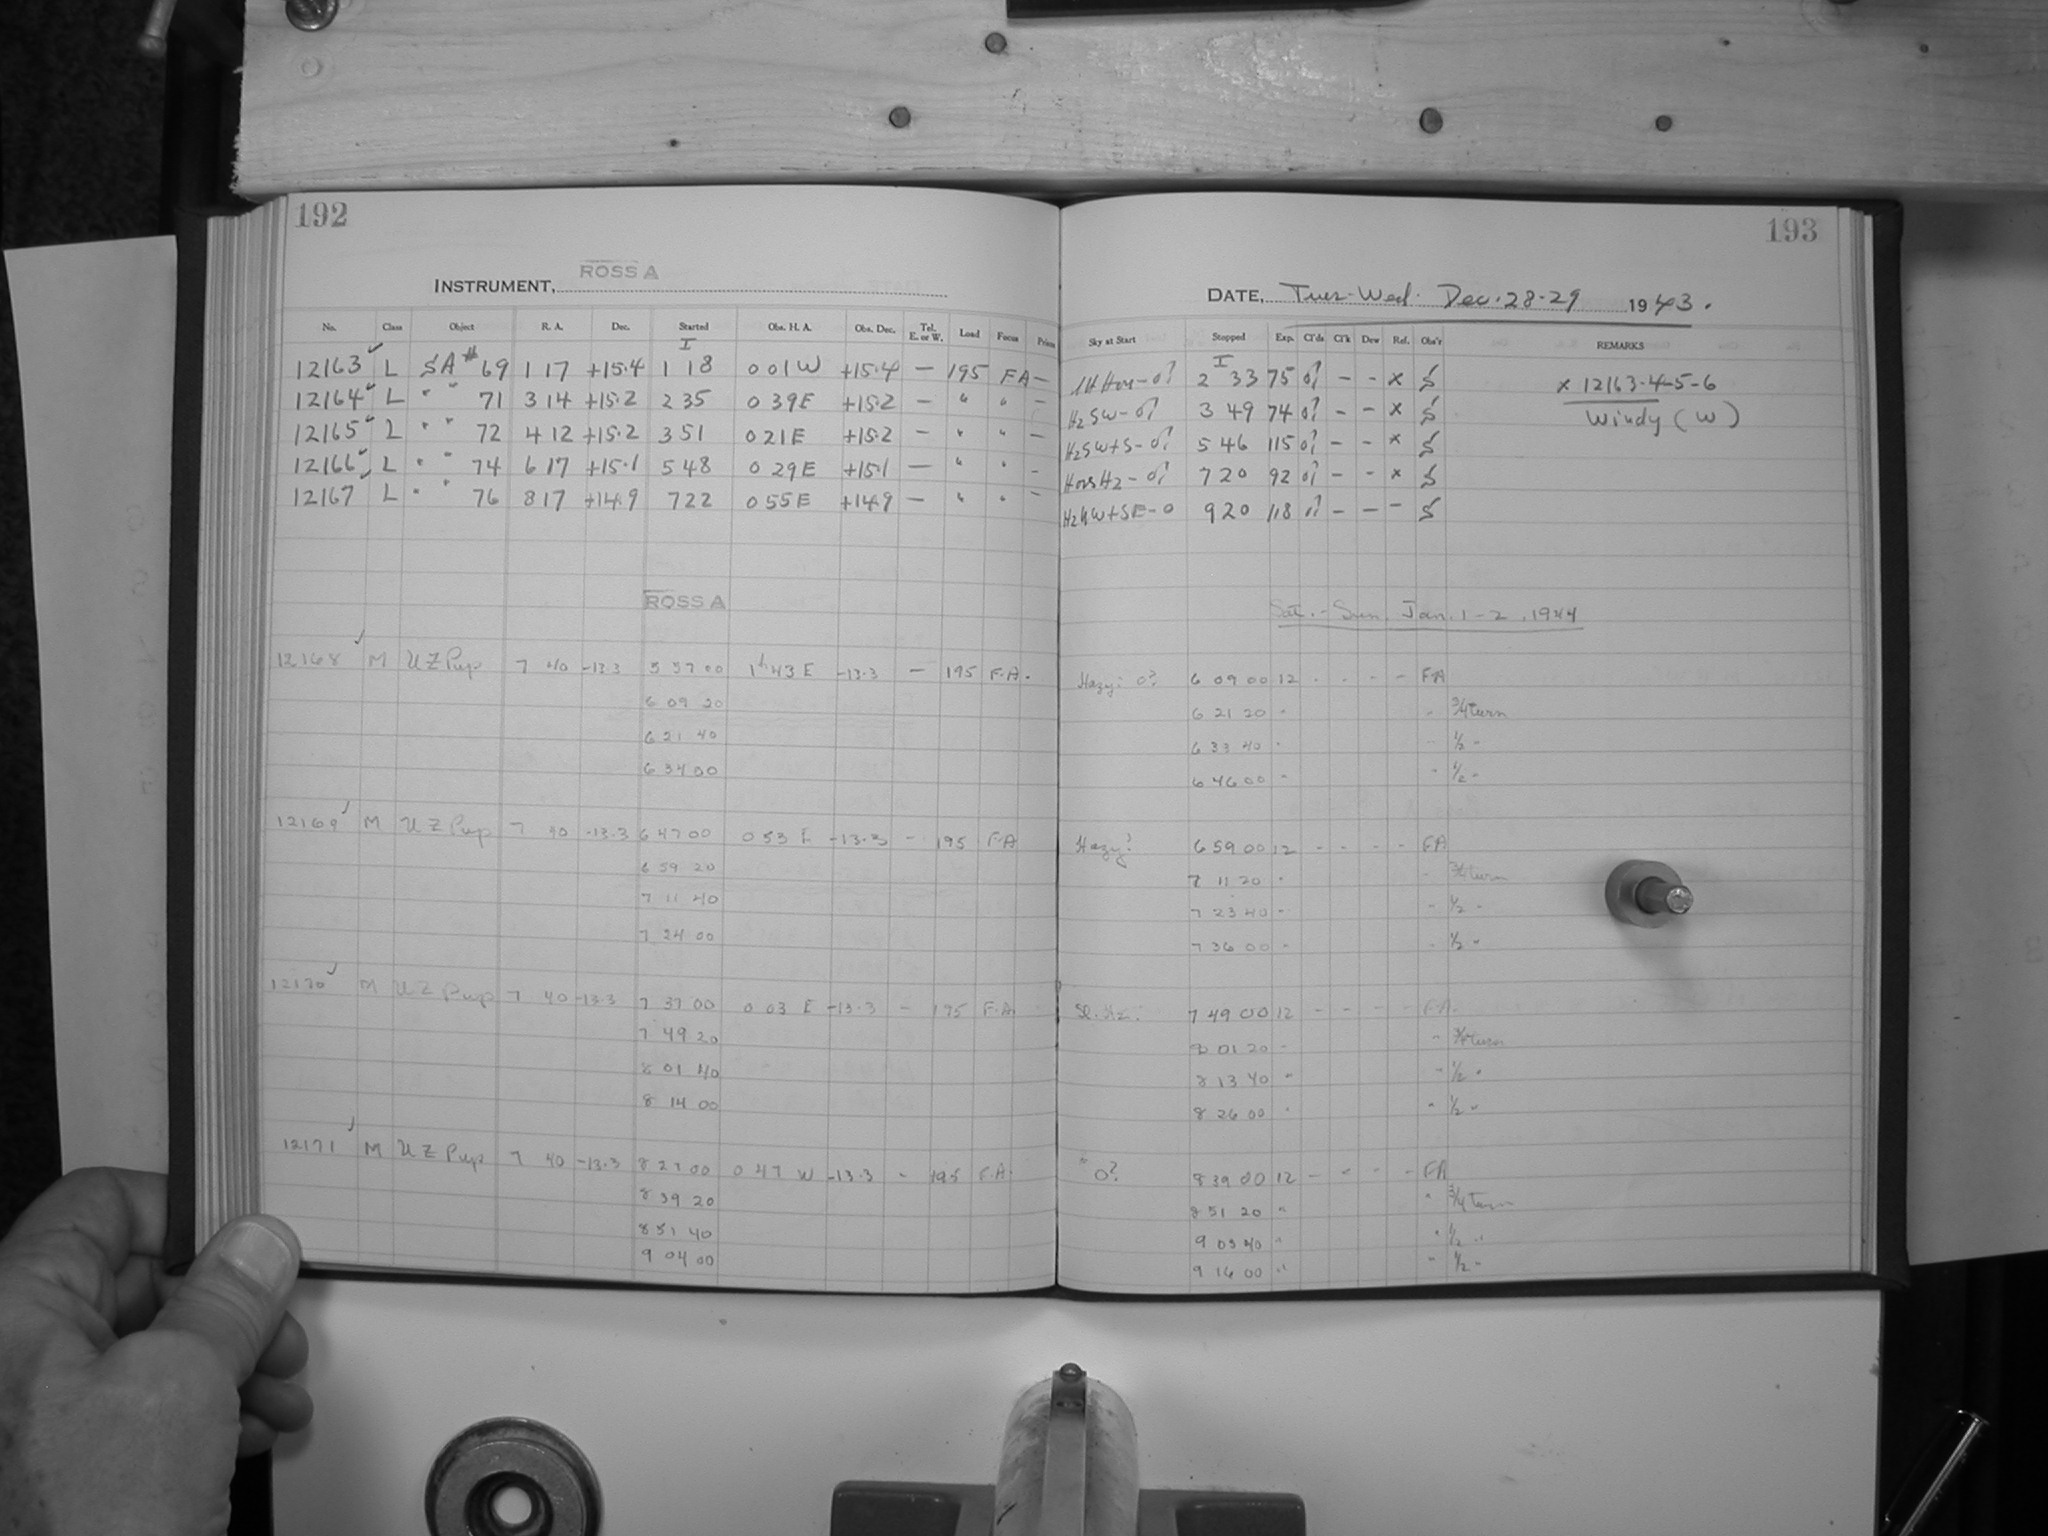 192
ROSS A
INSTRUMENT,
No. Class Object R. A. Dec. Started Obs. H. A. Obs. Dec. Tel. E. or W. Load Focus Prism
I
12163 L SA # 69 1 17 +15.4 1 18 0 01 W +15.4 — 195 FA —
12164 L " " 71 3 14 +15.2 2 35 0 39 E +15.2 — " " —
12165 L " " 72 4 12 +15.2 3 51 0 21 E +15.2 — " " —
12166 L " " 74 6 17 +15.1 5 48 0 29 E +15.1 — " " —
12167 L " " 76 8 17 +14.9 7 22 0 55 E +14.9 — " " —
ROSS A
12168 M UZ Pup 7 40 -13.3 5 57 00 1h 43 E -13.3 — 195 F.A.
6 09 20
6 21 40
6 34 00
12169 M UZ Pup 7 40 -13.3 6 47 00 0 53 E -13.3 - 195 F.A
6 59 20
7 11 40
7 24 00
12170 M UZ Pup 7 40 -13.3 7 37 00 0 03 E -13.3 - 195 F.A
7 49 20
8 01 40
8 14 00
12171 M UZ Pup 7 40 -13.3 8 27 00 0 47 W -13.3 - 195 F.A.
8 39 20
8 51 40
9 04 00
193
DATE, Tues-Wed. Dec. 28-29 1943.
Sky at Start Stopped Exp. Cl'ds Cl'k Dew Ref. Obs'r REMARKS
I
0? 2 33 75 0? - - x S x 12163-4-5-6
Hz SW - 0? 3 49 74 0? - - x S Windy (W)
Hz SW+S - 0? 5 46 115 0? - - x S
Hz - 0? 7 20 92 0? - - x S
SE - 0 9 20 118 0? - - - S
Sat. - Sun. Jan. 1-2, 1944
Hazy: 0? 6 09 00 12 - - - - FA
6 21 20 " " 3/4 turn
6 33 40 " " 1/2 "
6 46 00 " " 1/2 "
Hazy? 6 59 00 12 - - - - FA
7 11 20 " " 3/4 turn
7 23 40 " " 1/2 "
7 36 00 " " 1/2 "
Sl. Hz. 7 49 00 12 - - - - F.A.
8 01 20 " " 3/4 turn
8 13 40 " " 1/2 "
8 26 00 " " 1/2 "
" 0? 8 39 00 12 - - - - FA
8 51 20 " " 3/4 turn
9 03 40 " " 1/2 "
9 16 00 " " 1/2 "